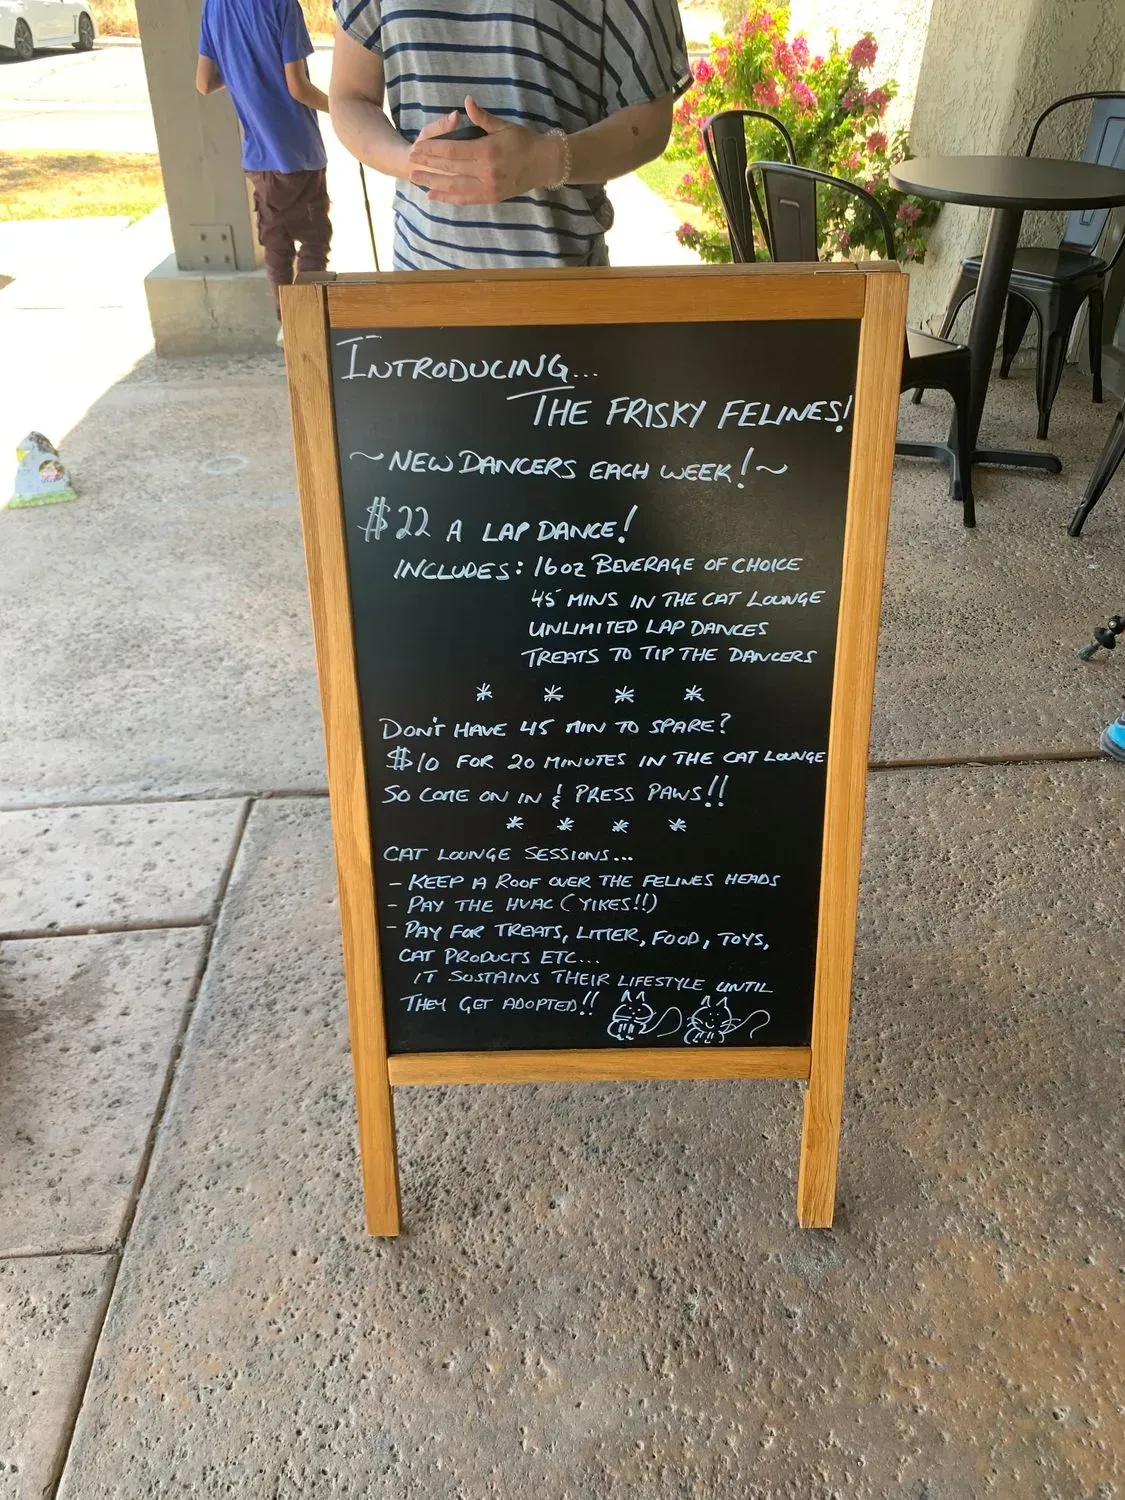 INTRODUCING...
THE FRISKY FELINES!
~NEW DANCERS EACH WEEK!~
$22 A LAP DANCE!
INCLUDES: 16oz BEVERAGE OF CHOICE
45 MINS IN THE CAT LOUNGE
UNLIMITED LAP DANCES
TREATS TO TIP THE DANCERS
* * * *
DON'T HAVE 45 MIN TO SPARE?
$10 FOR 20 MINUTES IN THE CAT LOUNGE
SO COME ON IN & PRESS PAWS!!
* * * *
CAT LOUNGE SESSIONS...
- KEEP A ROOF OVER THE FELINES HEADS
- PAY THE HVAC (YIKES!!)
- PAY FOR TREATS, LITTER, FOOD, TOYS,
CAT PRODUCTS ETC...
IT SUSTAINS THEIR LIFESTYLE UNTIL
THEY GET ADOPTED!!